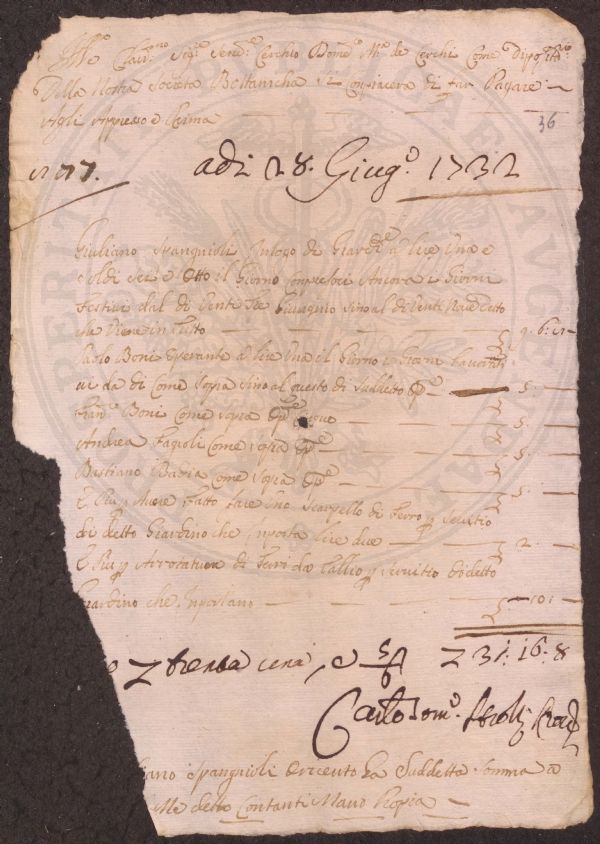 Ill.mo Clar.mo Sig.r Sen.re Cerchio Dom.co M.a de Cerchi Come Depos.rio
Della Nostra Societa Bottanicha Si Compiacera di far Pagare
Agli Appresso e Prima
36
N 77. adi 28. Giug.o 1732
Giuliano Spangnioli In logo di Giard.re a lire Una e
soldi Sei e Otto il Giorno Compresoci Ancora i Giorni
Festivi dal di Vente Giungnio Sino al di Vent Otto
in Tutto 9. 6:
Paolo Boni Operante a lire Una il Giorno i Giorni Lavorativi
da di Come Sopra Sino al questo di Suddetto 5.
Fran.o Boni Come Sopra 5.
Andrea Fagioli Come Sopra 5.
Bastiano Badia Come Sopra 5.
E Piu Avere Fatto Fare Uno Scarpello di Ferro p Servitio
di detto Giardino che Inporta lire due 2.
E Piu p Arrotatura di Ferri da Tallio p Servitio di detto
Giardino che Inportano 10:
trenta una, e Z 31: 16: 8
Carlo Dom.o
Spangnioli O riceuto La Suddetta Somma
detto Contanti Mano Propia